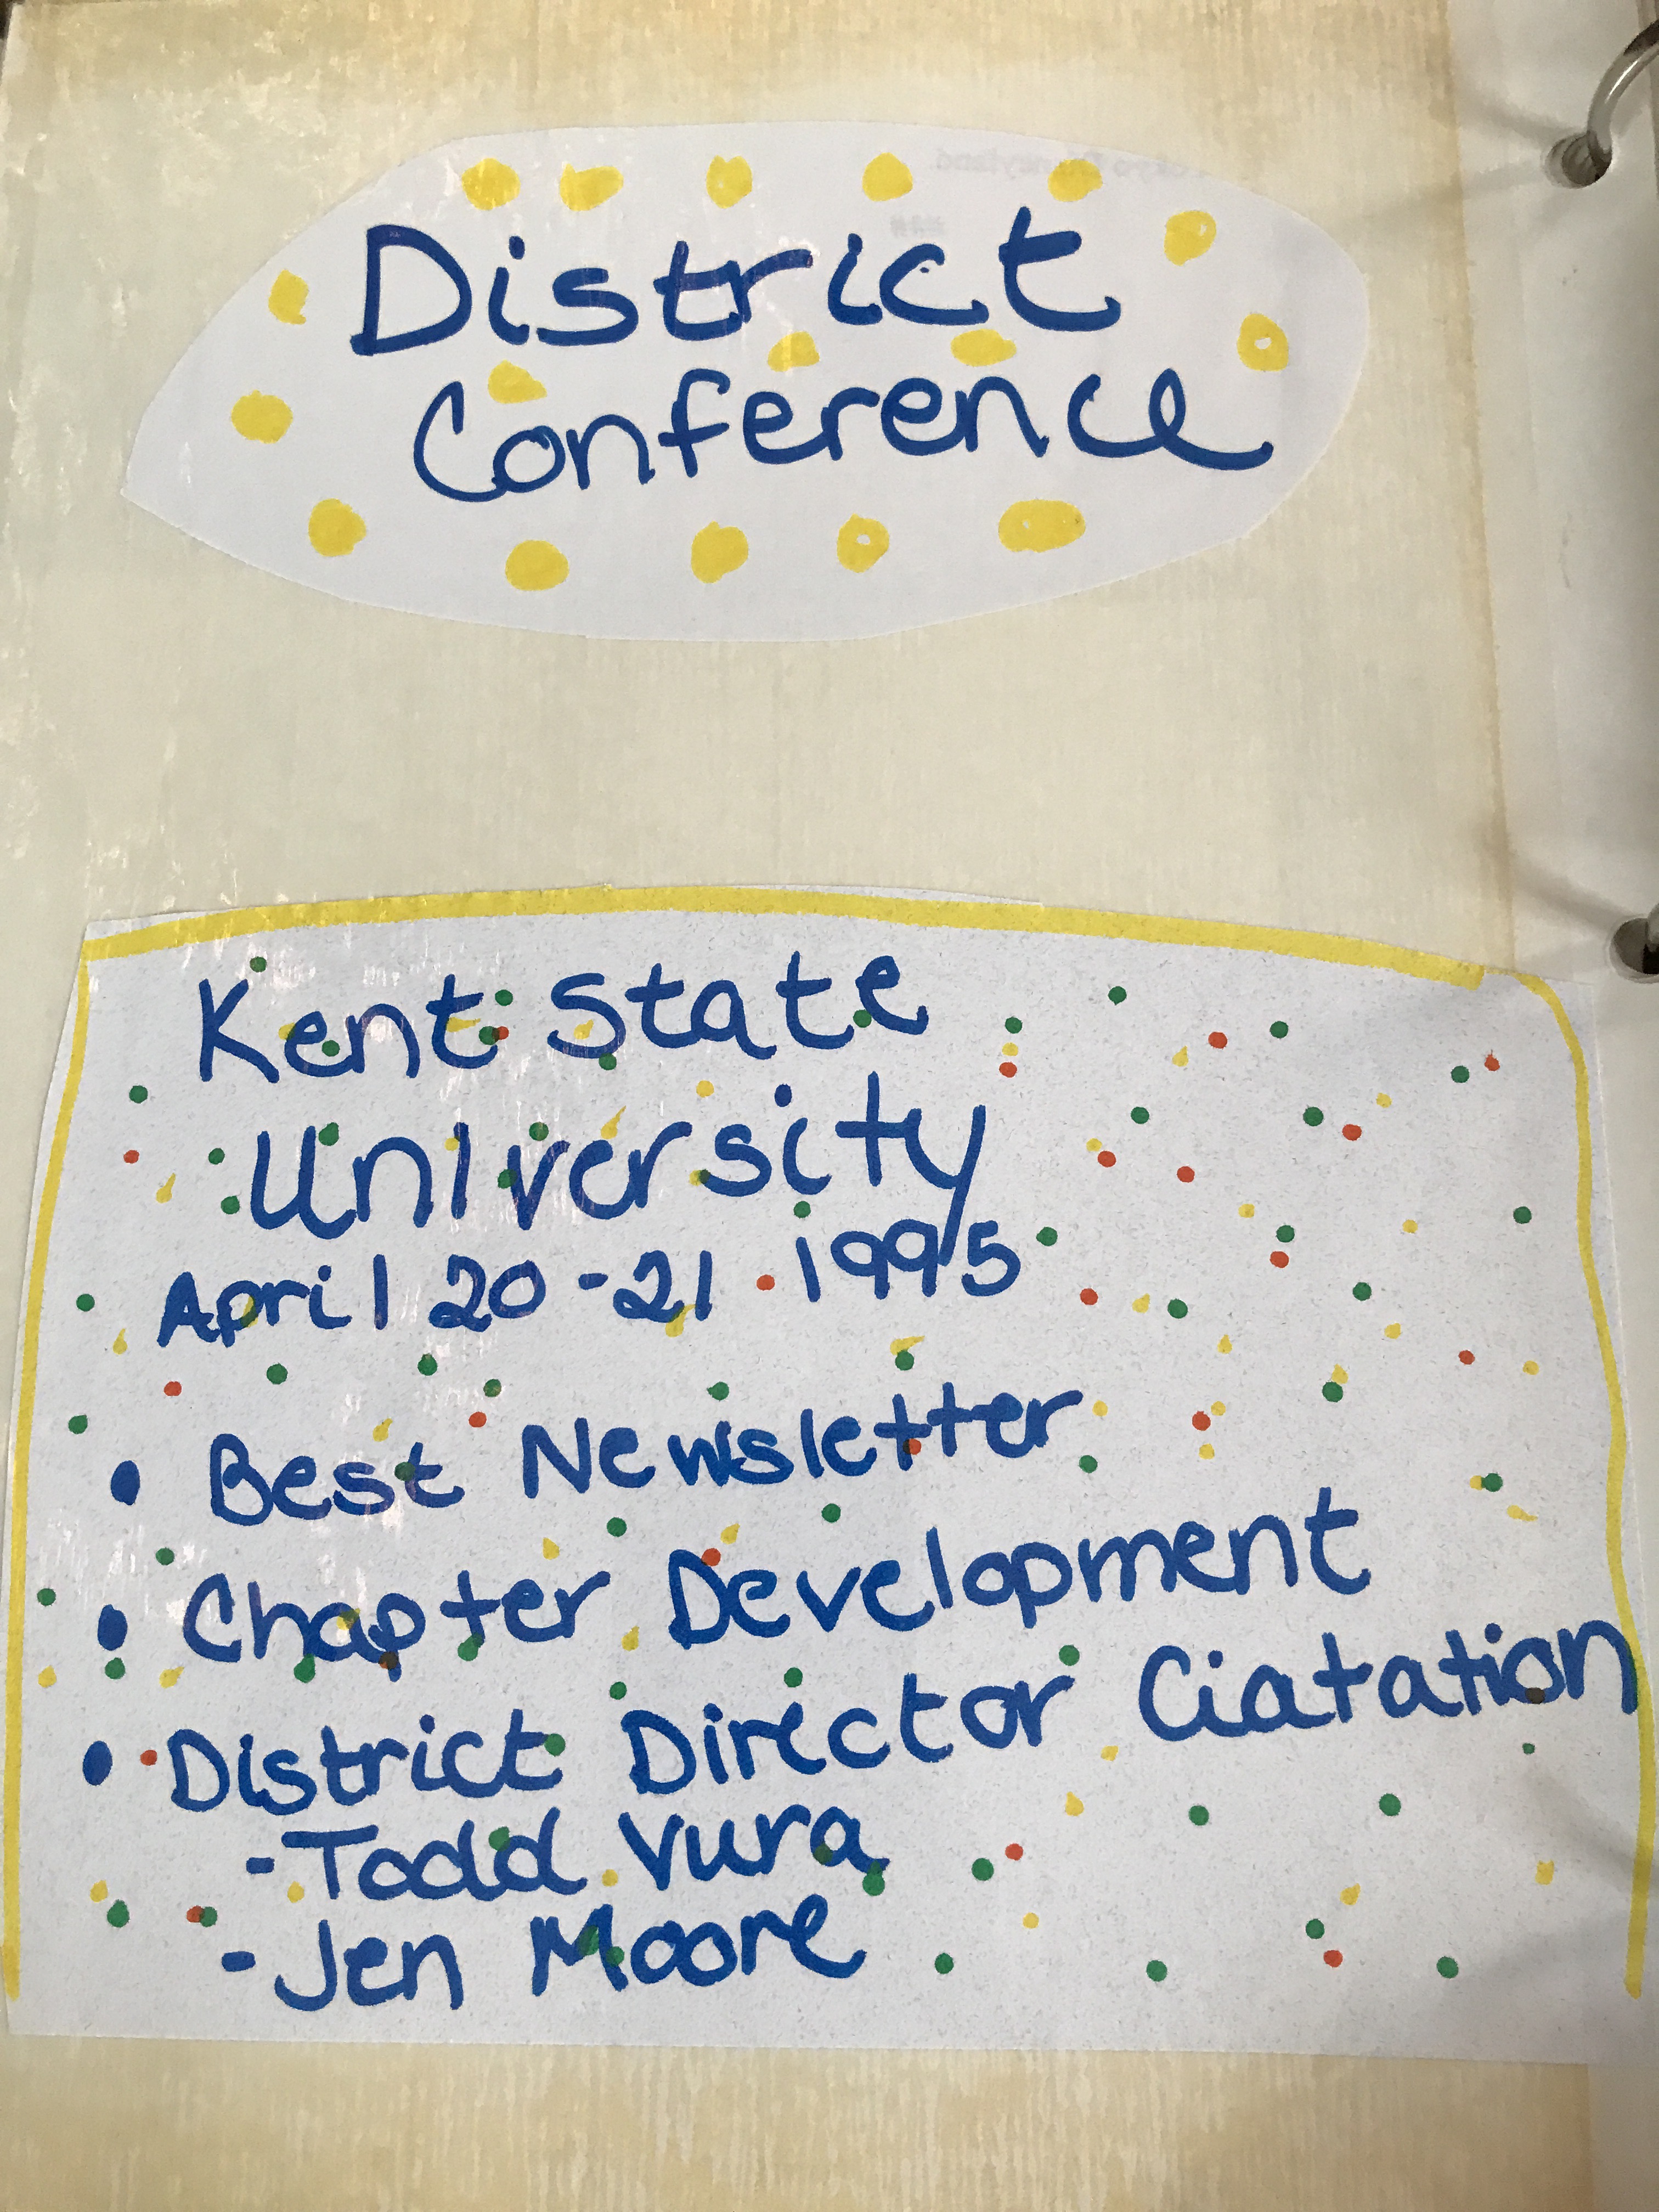 District
Conference
Kent State
University
April 20-21 1995
• Best Newsletter
• Chapter Development
• District Director Ciatation
- Todd Vura
- Jen Moore